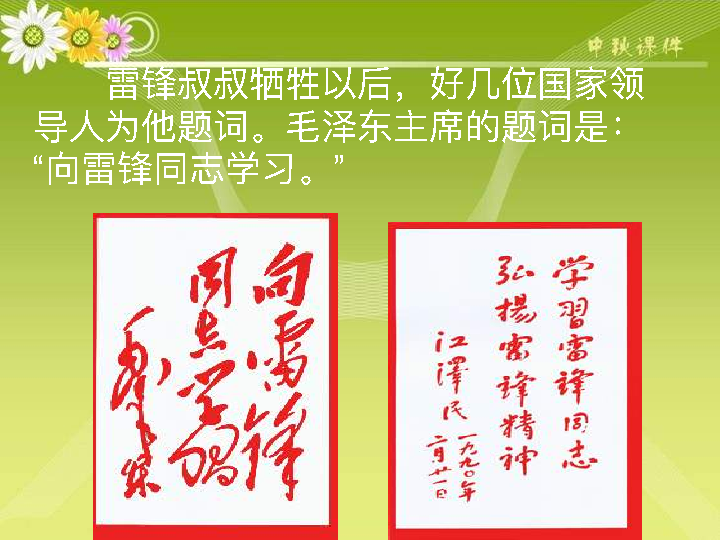 中秋课件
雷锋叔叔牺牲以后，好几位国家领
导人为他题词。毛泽东主席的题词是：
“向雷锋同志学习。”
向雷锋
同志学习
毛泽东
学習雷锋同志
弘揚雷锋精神
江澤民
一九九〇年
二月廿一日